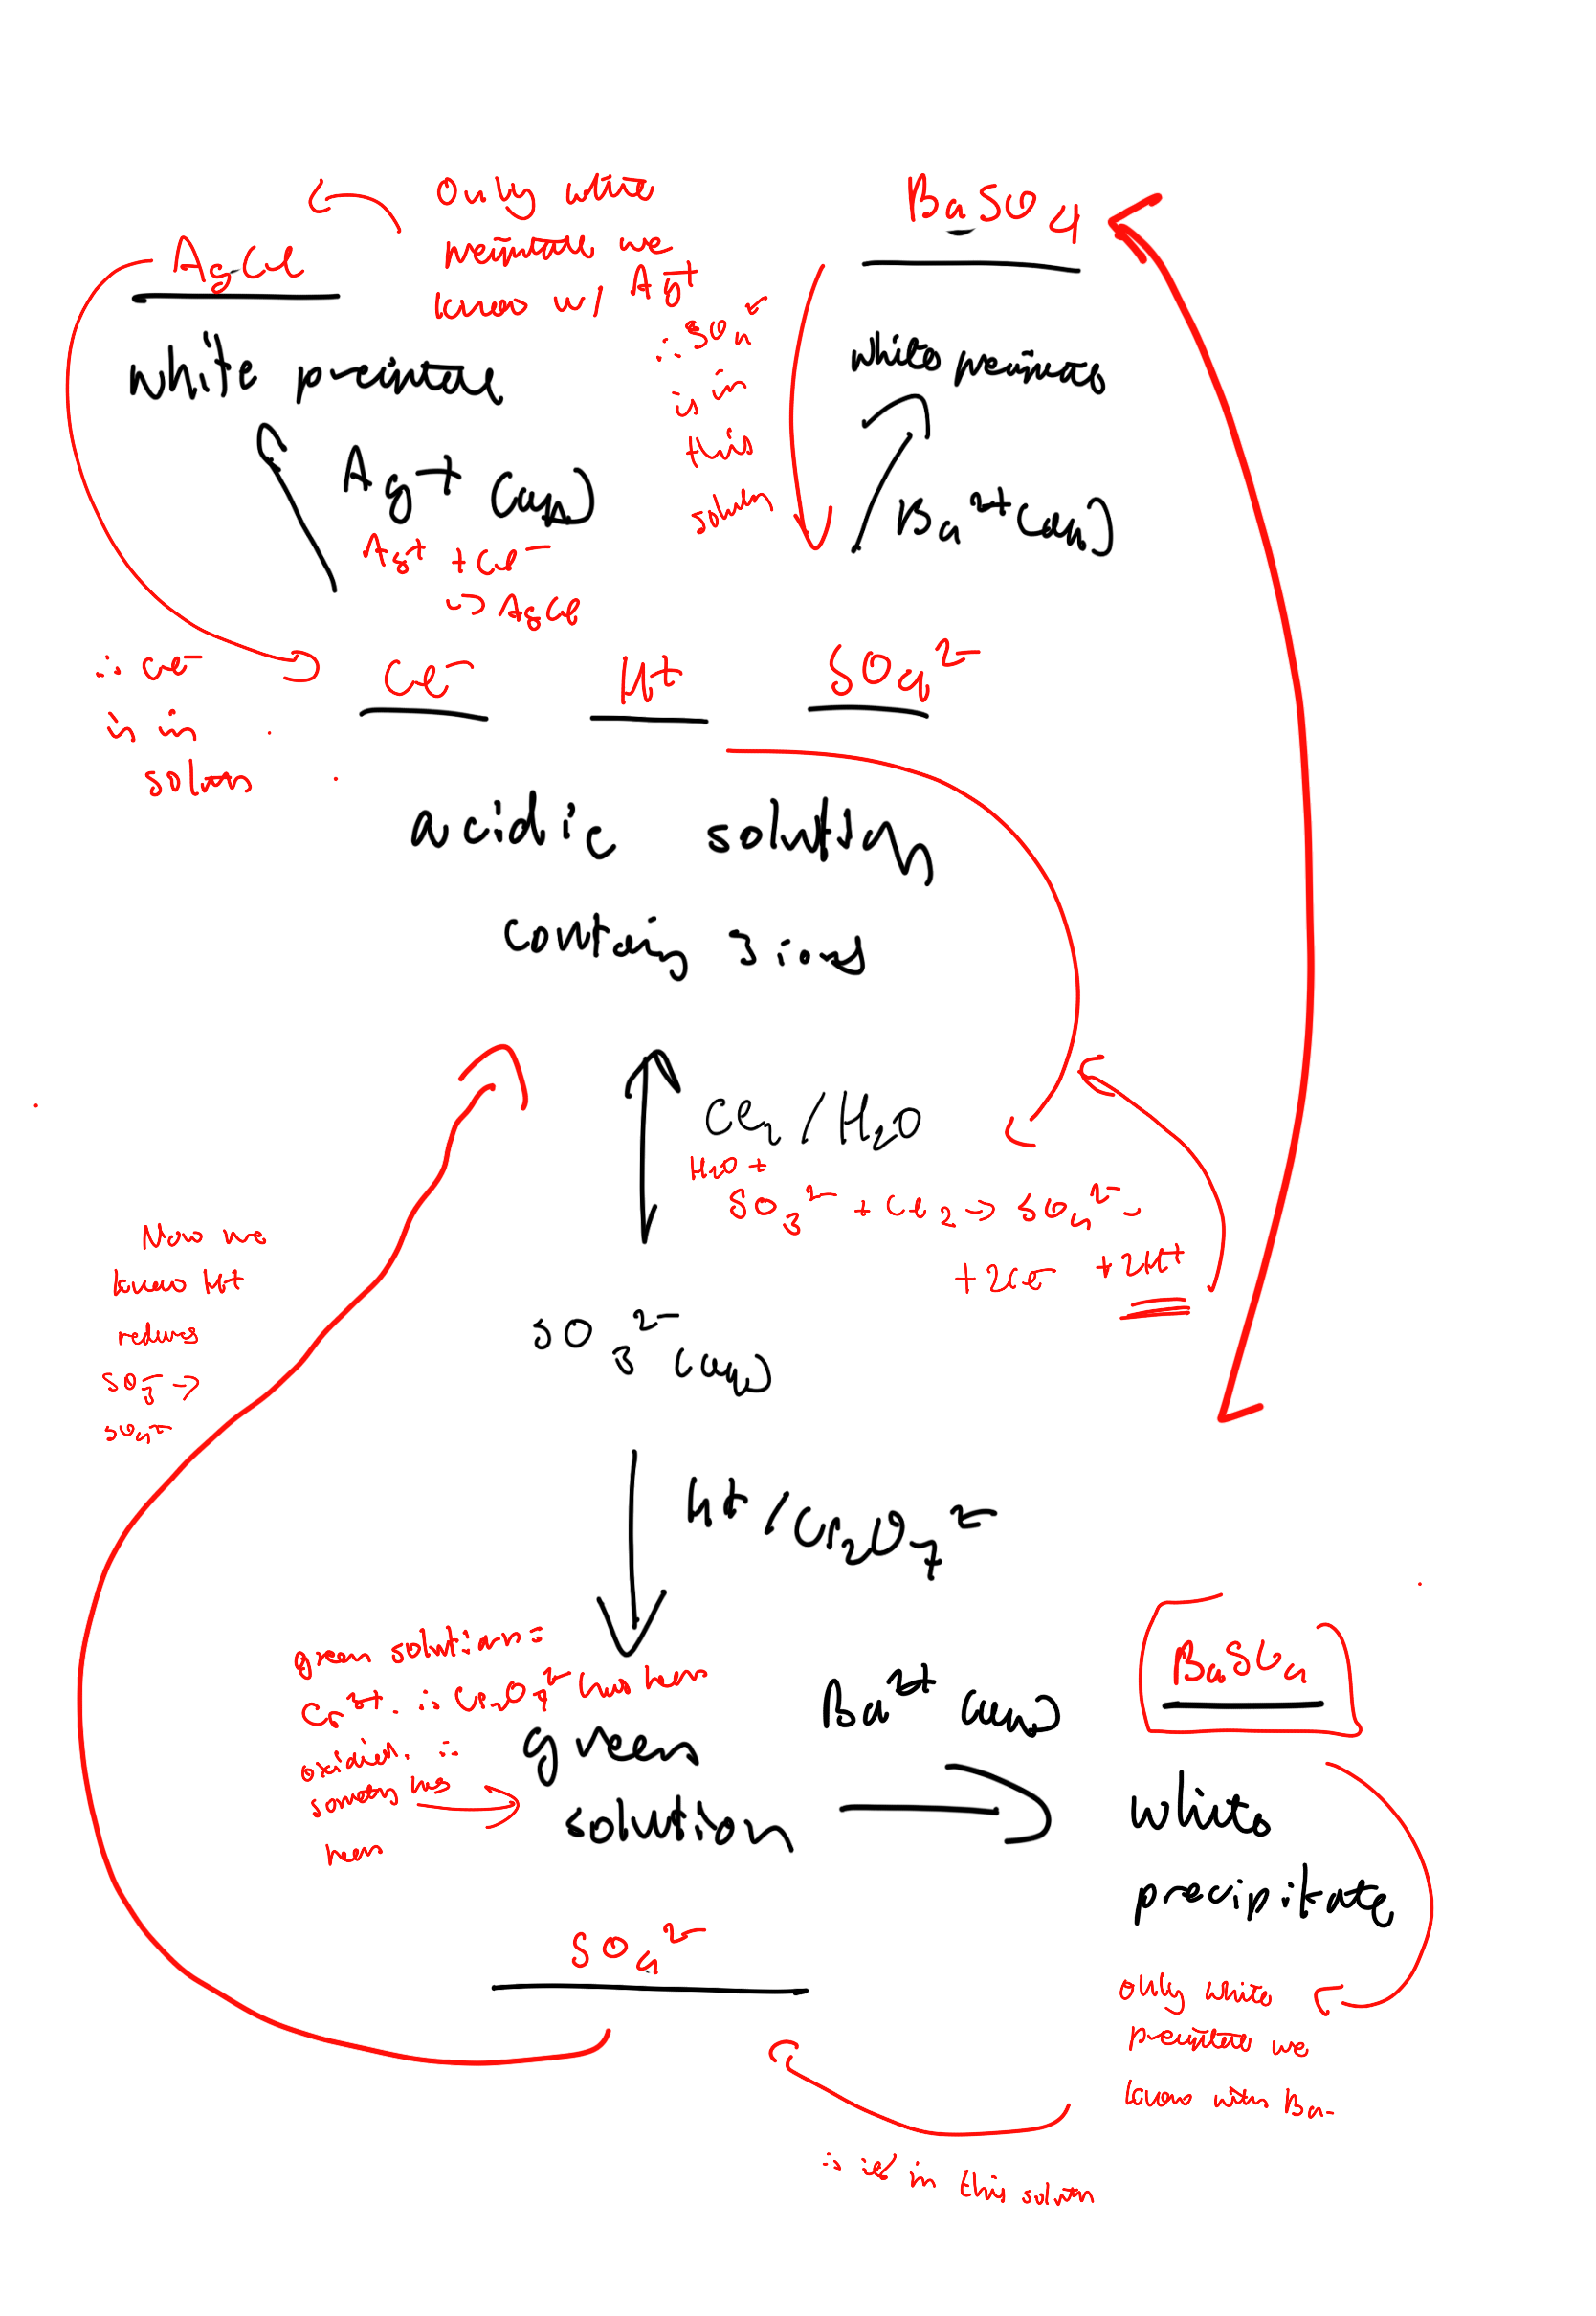 Only white
precipitate we
know w/ Ag+
AgCl
white precipitate
Ag+ (aq)
Ag+ + Cl−
→ AgCl
∴ Cl−
is in
solution
BaSO4
white precipitate
Ba2+ (aq)
∴ SO4 2−
is in
this
solution
Cl− H+ SO4 2−
acidic solution
containing 3 ions
Cl2 / H2O
H2O +
SO3 2− + Cl2 → SO4 2−
+ 2Cl− + 2H+
SO3 2− (aq)
Now we
know H+
reduces
SO3− →
SO4−
H+ / Cr2O7 2−
green solution =
Cr3+ ∴ Cr2O7 2− has been
oxidised. ∴
something has
been
green
solution
Ba2+ (aq)
BaSO4
white
precipitate
SO4 2−
only white
precipitate we
know with Ba
∴ is in this solution